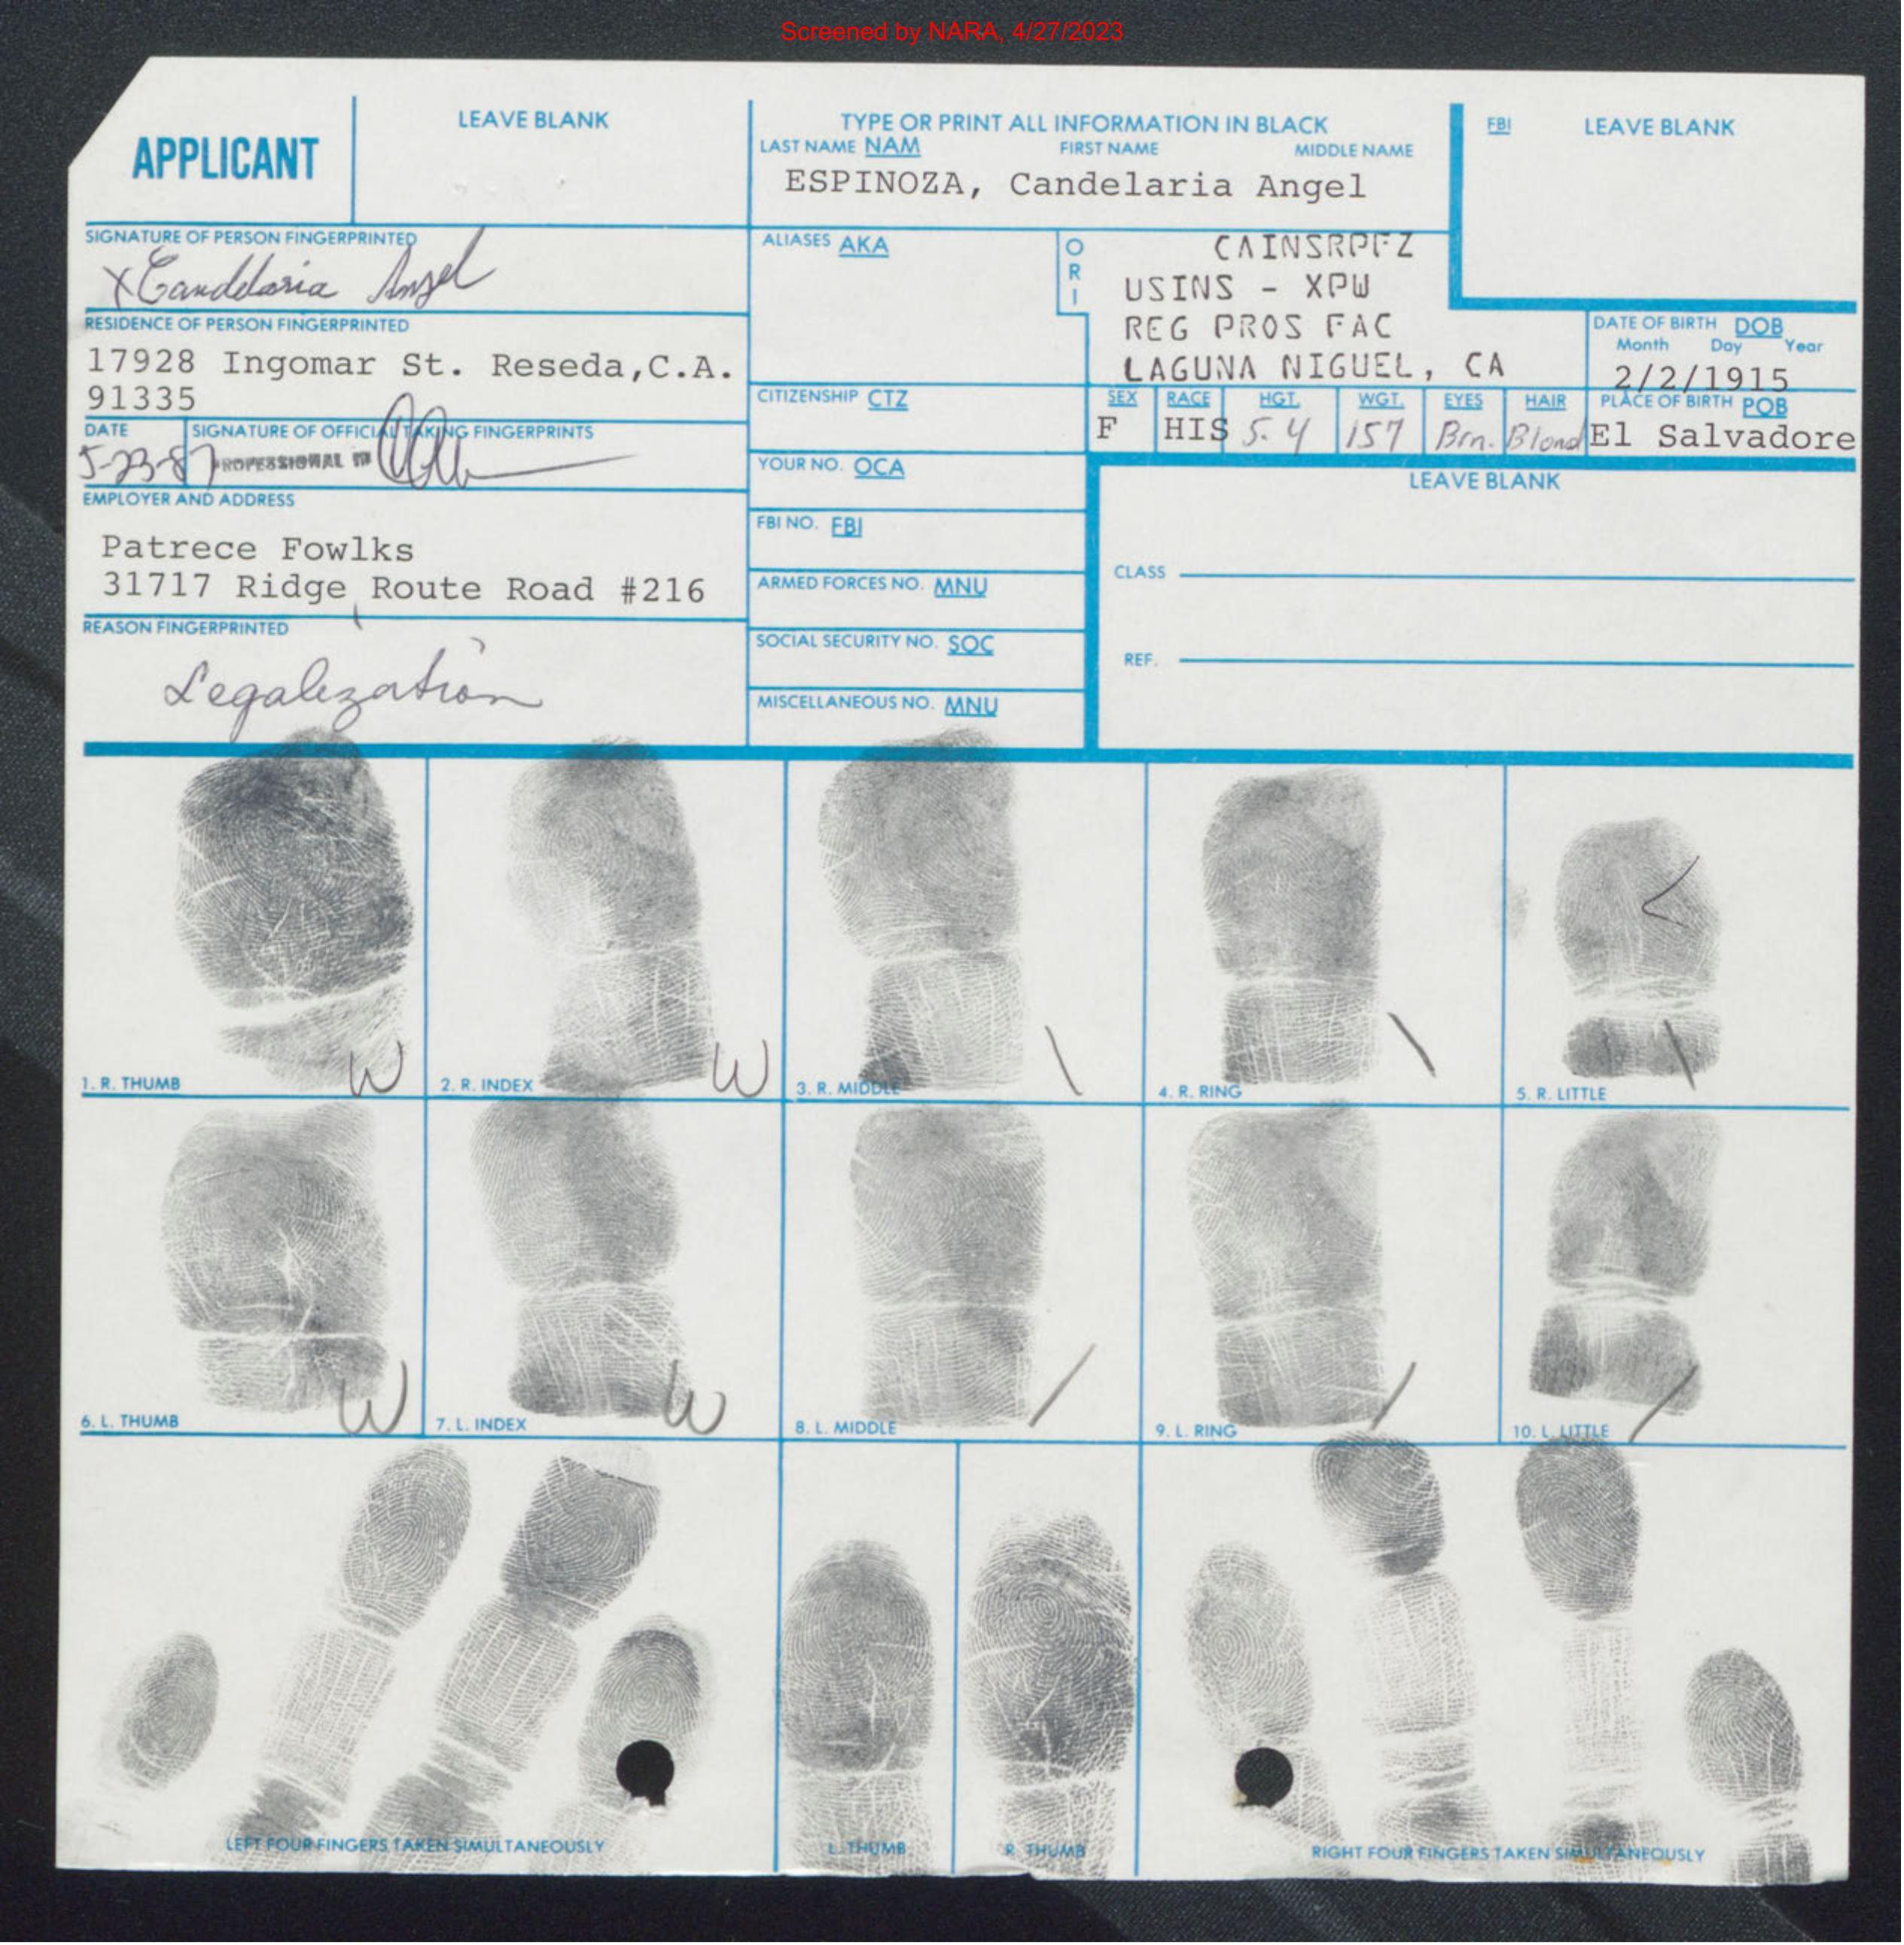 Screened by NARA, 4/27/2023
APPLICANT
LEAVE BLANK
TYPE OR PRINT ALL INFORMATION IN BLACK
LAST NAME NAM FIRST NAME MIDDLE NAME
ESPINOZA, Candelaria Angel
FBI LEAVE BLANK
SIGNATURE OF PERSON FINGERPRINTED
X Candelaria Angel
ALIASES AKA
ORI
CAINSRPFZ
USINS - XPW
REG PROS FAC
LAGUNA NIGUEL, CA
RESIDENCE OF PERSON FINGERPRINTED
17928 Ingomar St. Reseda,C.A.
91335
DATE OF BIRTH DOB
Month Day Year
2/2/1915
CITIZENSHIP CTZ
SEX RACE HGT. WGT. EYES HAIR PLACE OF BIRTH POB
F HIS 5.4 157 Brn. Blond El Salvadore
DATE SIGNATURE OF OFFICIAL TAKING FINGERPRINTS
5-23-87 PROFESSIONAL
YOUR NO. OCA
LEAVE BLANK
EMPLOYER AND ADDRESS
Patrece Fowlks
31717 Ridge Route Road #216
FBI NO. FBI
CLASS
ARMED FORCES NO. MNU
REASON FINGERPRINTED
Legalization
SOCIAL SECURITY NO. SOC
REF.
MISCELLANEOUS NO. MNU
1. R. THUMB W
2. R. INDEX W
3. R. MIDDLE \
4. R. RING \
5. R. LITTLE \
6. L. THUMB W
7. L. INDEX W
8. L. MIDDLE /
9. L. RING /
10. L. LITTLE /
LEFT FOUR FINGERS TAKEN SIMULTANEOUSLY
L. THUMB
R. THUMB
RIGHT FOUR FINGERS TAKEN SIMULTANEOUSLY